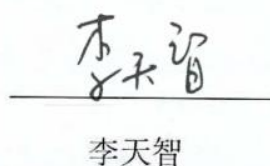 李天智
李天智